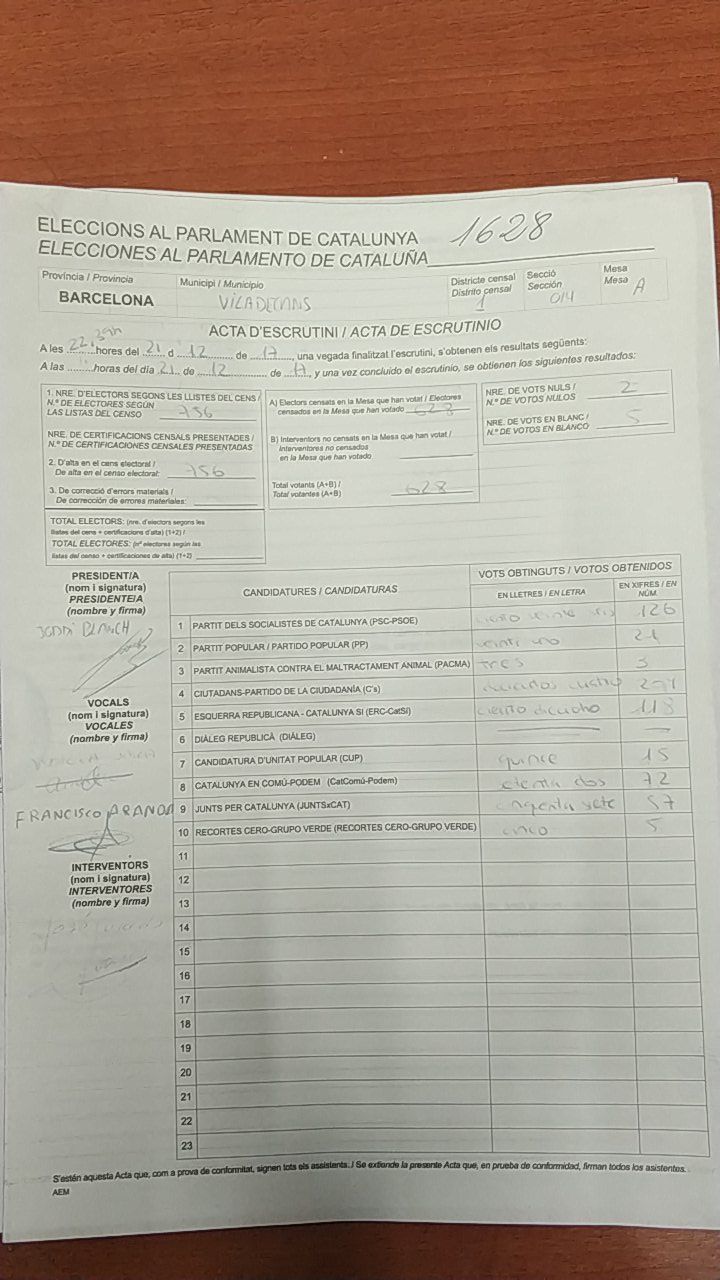 ELECCIONS AL PARLAMENT DE CATALUNYA 1628
ELECCIONES AL PARLAMENTO DE CATALUÑA
Província / Provincia Municipi / Municipio Districte censal Secció Mesa
Distrito censal Sección Mesa
BARCELONA VILADECANS 1 014 A
ACTA D'ESCRUTINI / ACTA DE ESCRUTINIO
A les 22,39h hores del 21 d 12 de 17, una vegada finalitzat l'escrutini, s'obtenen els resultats següents:
A las " horas del día 21 de 12 de 17, y una vez concluido el escrutinio, se obtienen los siguientes resultados:
1. NRE. D'ELECTORS SEGONS LES LLISTES DEL CENS /
N.º DE ELECTORES SEGÚN
LAS LISTAS DEL CENSO 756
NRE. DE CERTIFICACIONS CENSALS PRESENTADES /
N.º DE CERTIFICACIONES CENSALES PRESENTADAS
2. D'alta en el cens electoral /
De alta en el censo electoral: 756
3. De correcció d'errors materials /
De corrección de errores materiales:
TOTAL ELECTORS: (nre. d'electors segons les
llistes del cens + certificacions d'alta) (1+2) /
TOTAL ELECTORES: (nº electores según las
listas del censo + certificaciones de alta) (1+2)
A) Electors censats en la Mesa que han votat / Electores
censados en la Mesa que han votado 628
B) Interventors no censats en la Mesa que han votat /
Interventores no censados
en la Mesa que han votado
Total votants (A+B) /
Total votantes (A+B) 628
NRE. DE VOTS NULS /
N.º DE VOTOS NULOS 2
NRE. DE VOTS EN BLANC /
N.º DE VOTOS EN BLANCO 5
PRESIDENT/A
(nom i signatura)
PRESIDENTE/A
(nombre y firma)
JORDI BLANCH
VOCALS
(nom i signatura)
VOCALES
(nombre y firma)
FRANCISCO ARANDA
INTERVENTORS
(nom i signatura)
INTERVENTORES
(nombre y firma)
CANDIDATURES / CANDIDATURAS VOTS OBTINGUTS / VOTOS OBTENIDOS
EN LLETRES / EN LETRA EN XIFRES / EN NÚM.
1 PARTIT DELS SOCIALISTES DE CATALUNYA (PSC-PSOE) ciento veinte seis 126
2 PARTIT POPULAR / PARTIDO POPULAR (PP) veinti uno 21
3 PARTIT ANIMALISTA CONTRA EL MALTRACTAMENT ANIMAL (PACMA) tres 3
4 CIUTADANS-PARTIDO DE LA CIUDADANÍA (C's) cuatro
5 ESQUERRA REPUBLICANA - CATALUNYA SÍ (ERC-CatSí) ciento dieciocho 118
6 DIÀLEG REPUBLICÀ (DIÀLEG) — —
7 CANDIDATURA D'UNITAT POPULAR (CUP) quince 15
8 CATALUNYA EN COMÚ-PODEM (CatComú-Podem) setenta dos 72
9 JUNTS PER CATALUNYA (JUNTSxCAT) cinquenta siete 57
10 RECORTES CERO-GRUPO VERDE (RECORTES CERO-GRUPO VERDE) cinco 5
11
12
13
14
15
16
17
18
19
20
21
22
23
S'estén aquesta Acta que, com a prova de conformitat, signen tots els assistents. / Se extiende la presente Acta que, en prueba de conformidad, firman todos los asistentes.
AEM